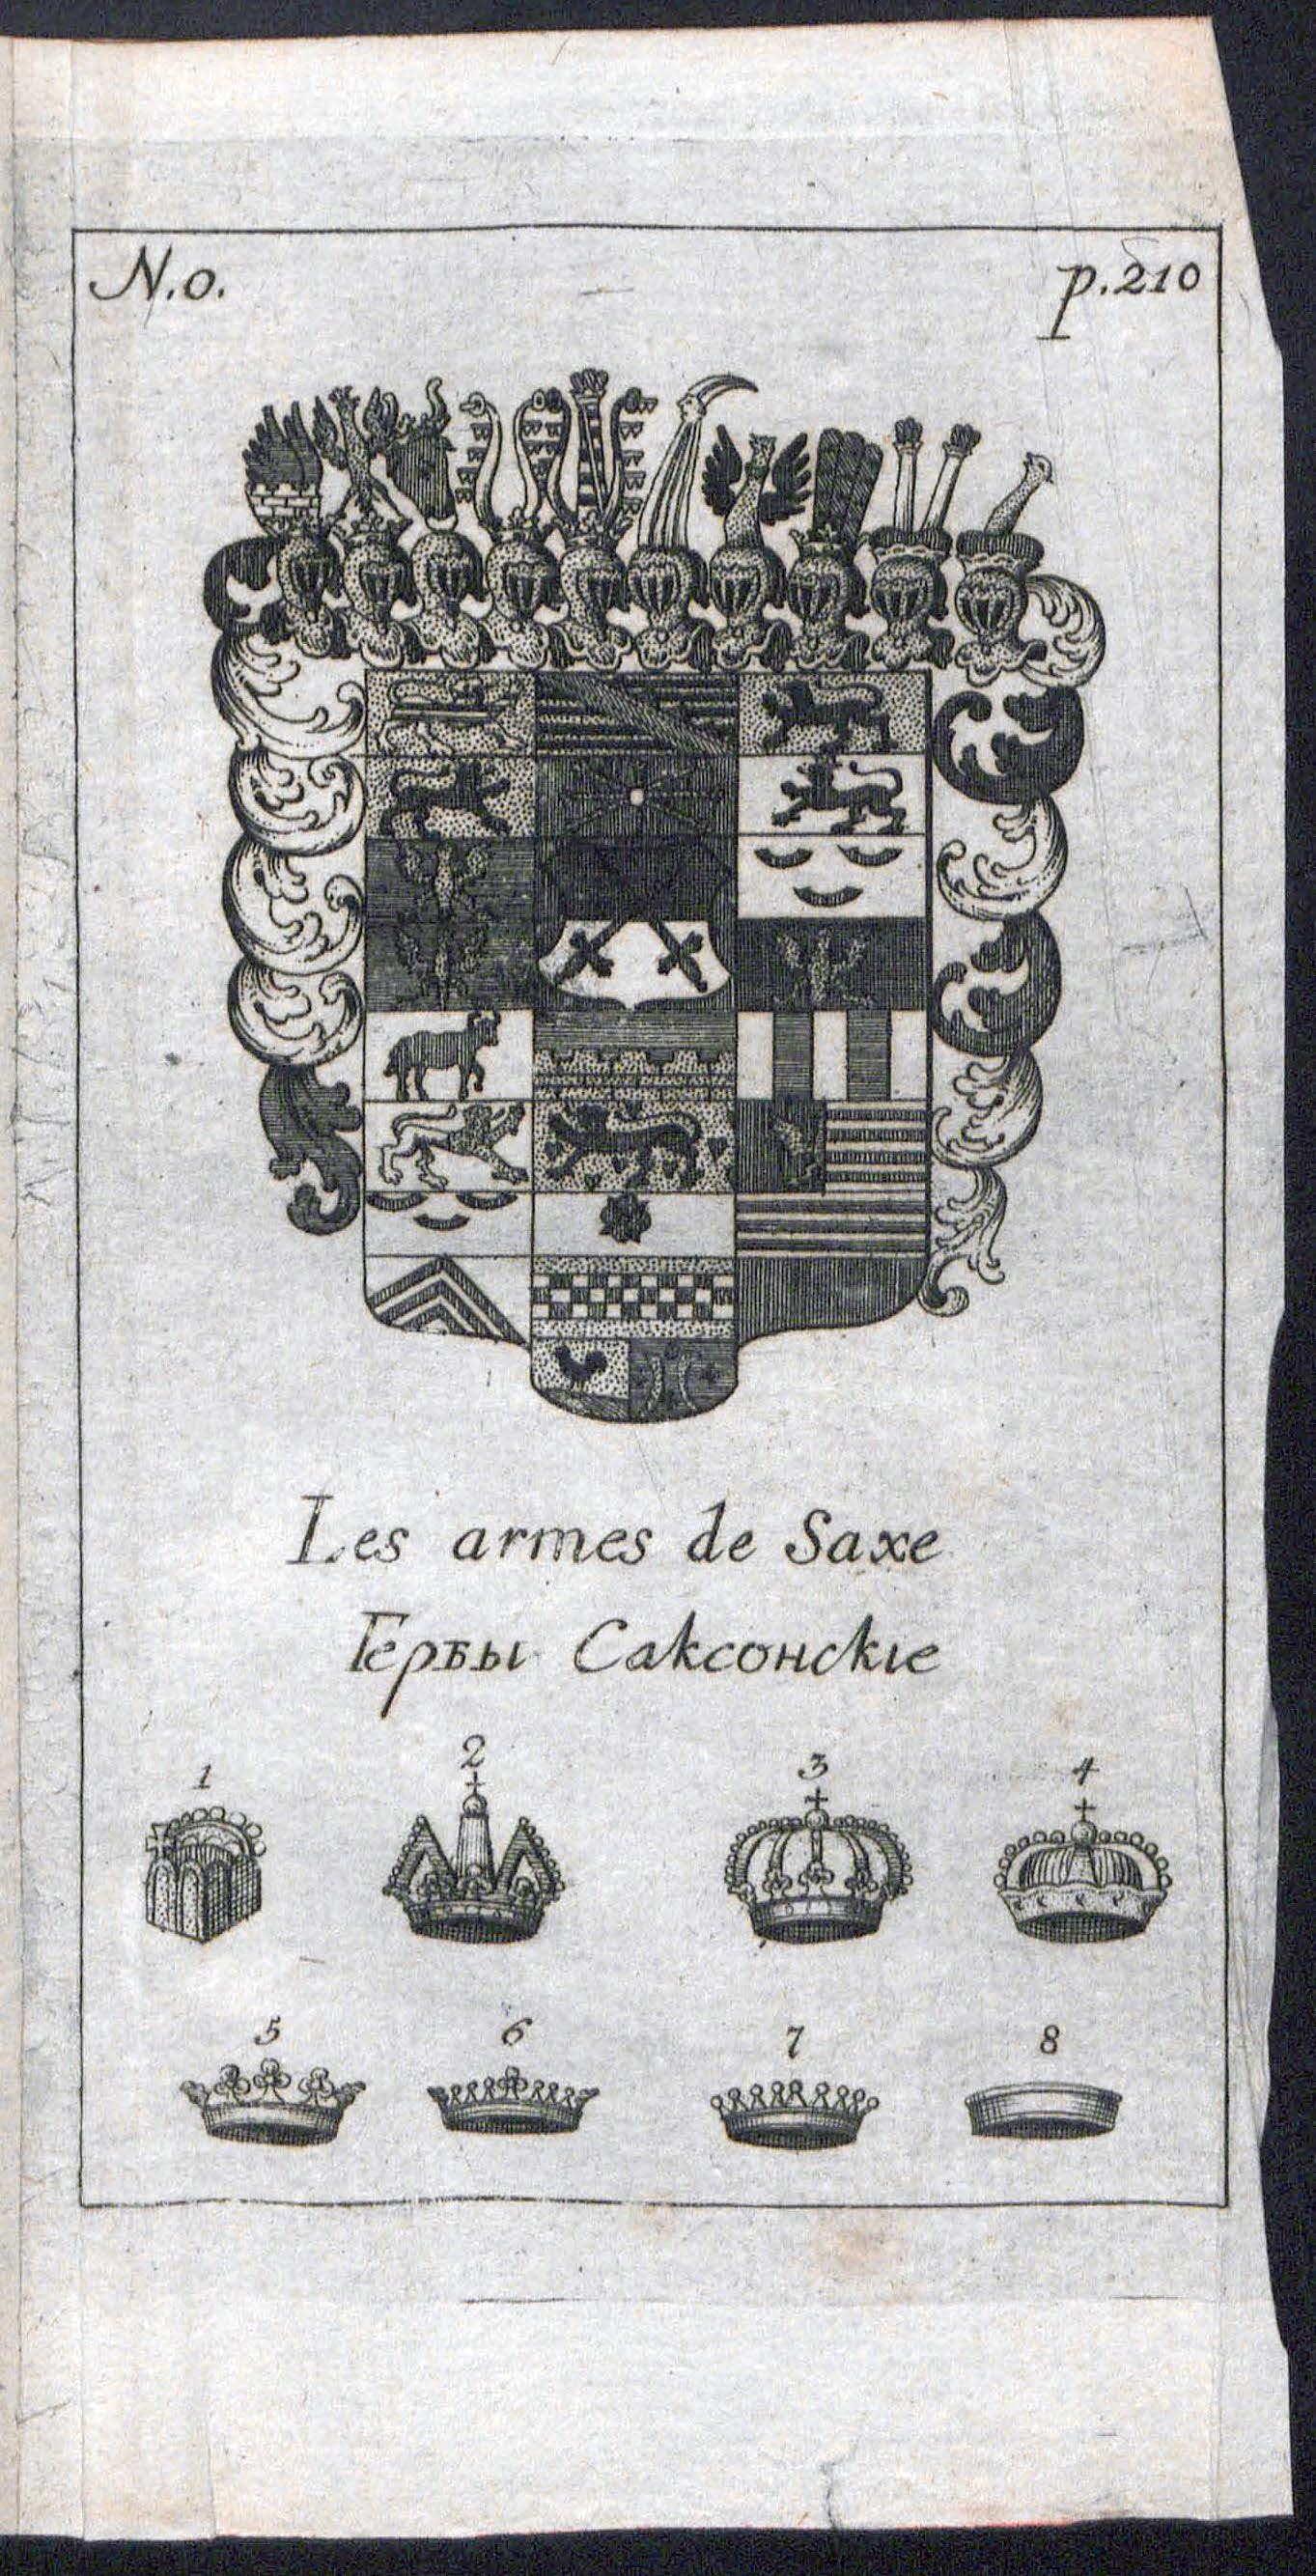 N.o.
p.210
Les armes de Saxe
Гербы Саксонскıе
1
2
3
4
5
6
7
8